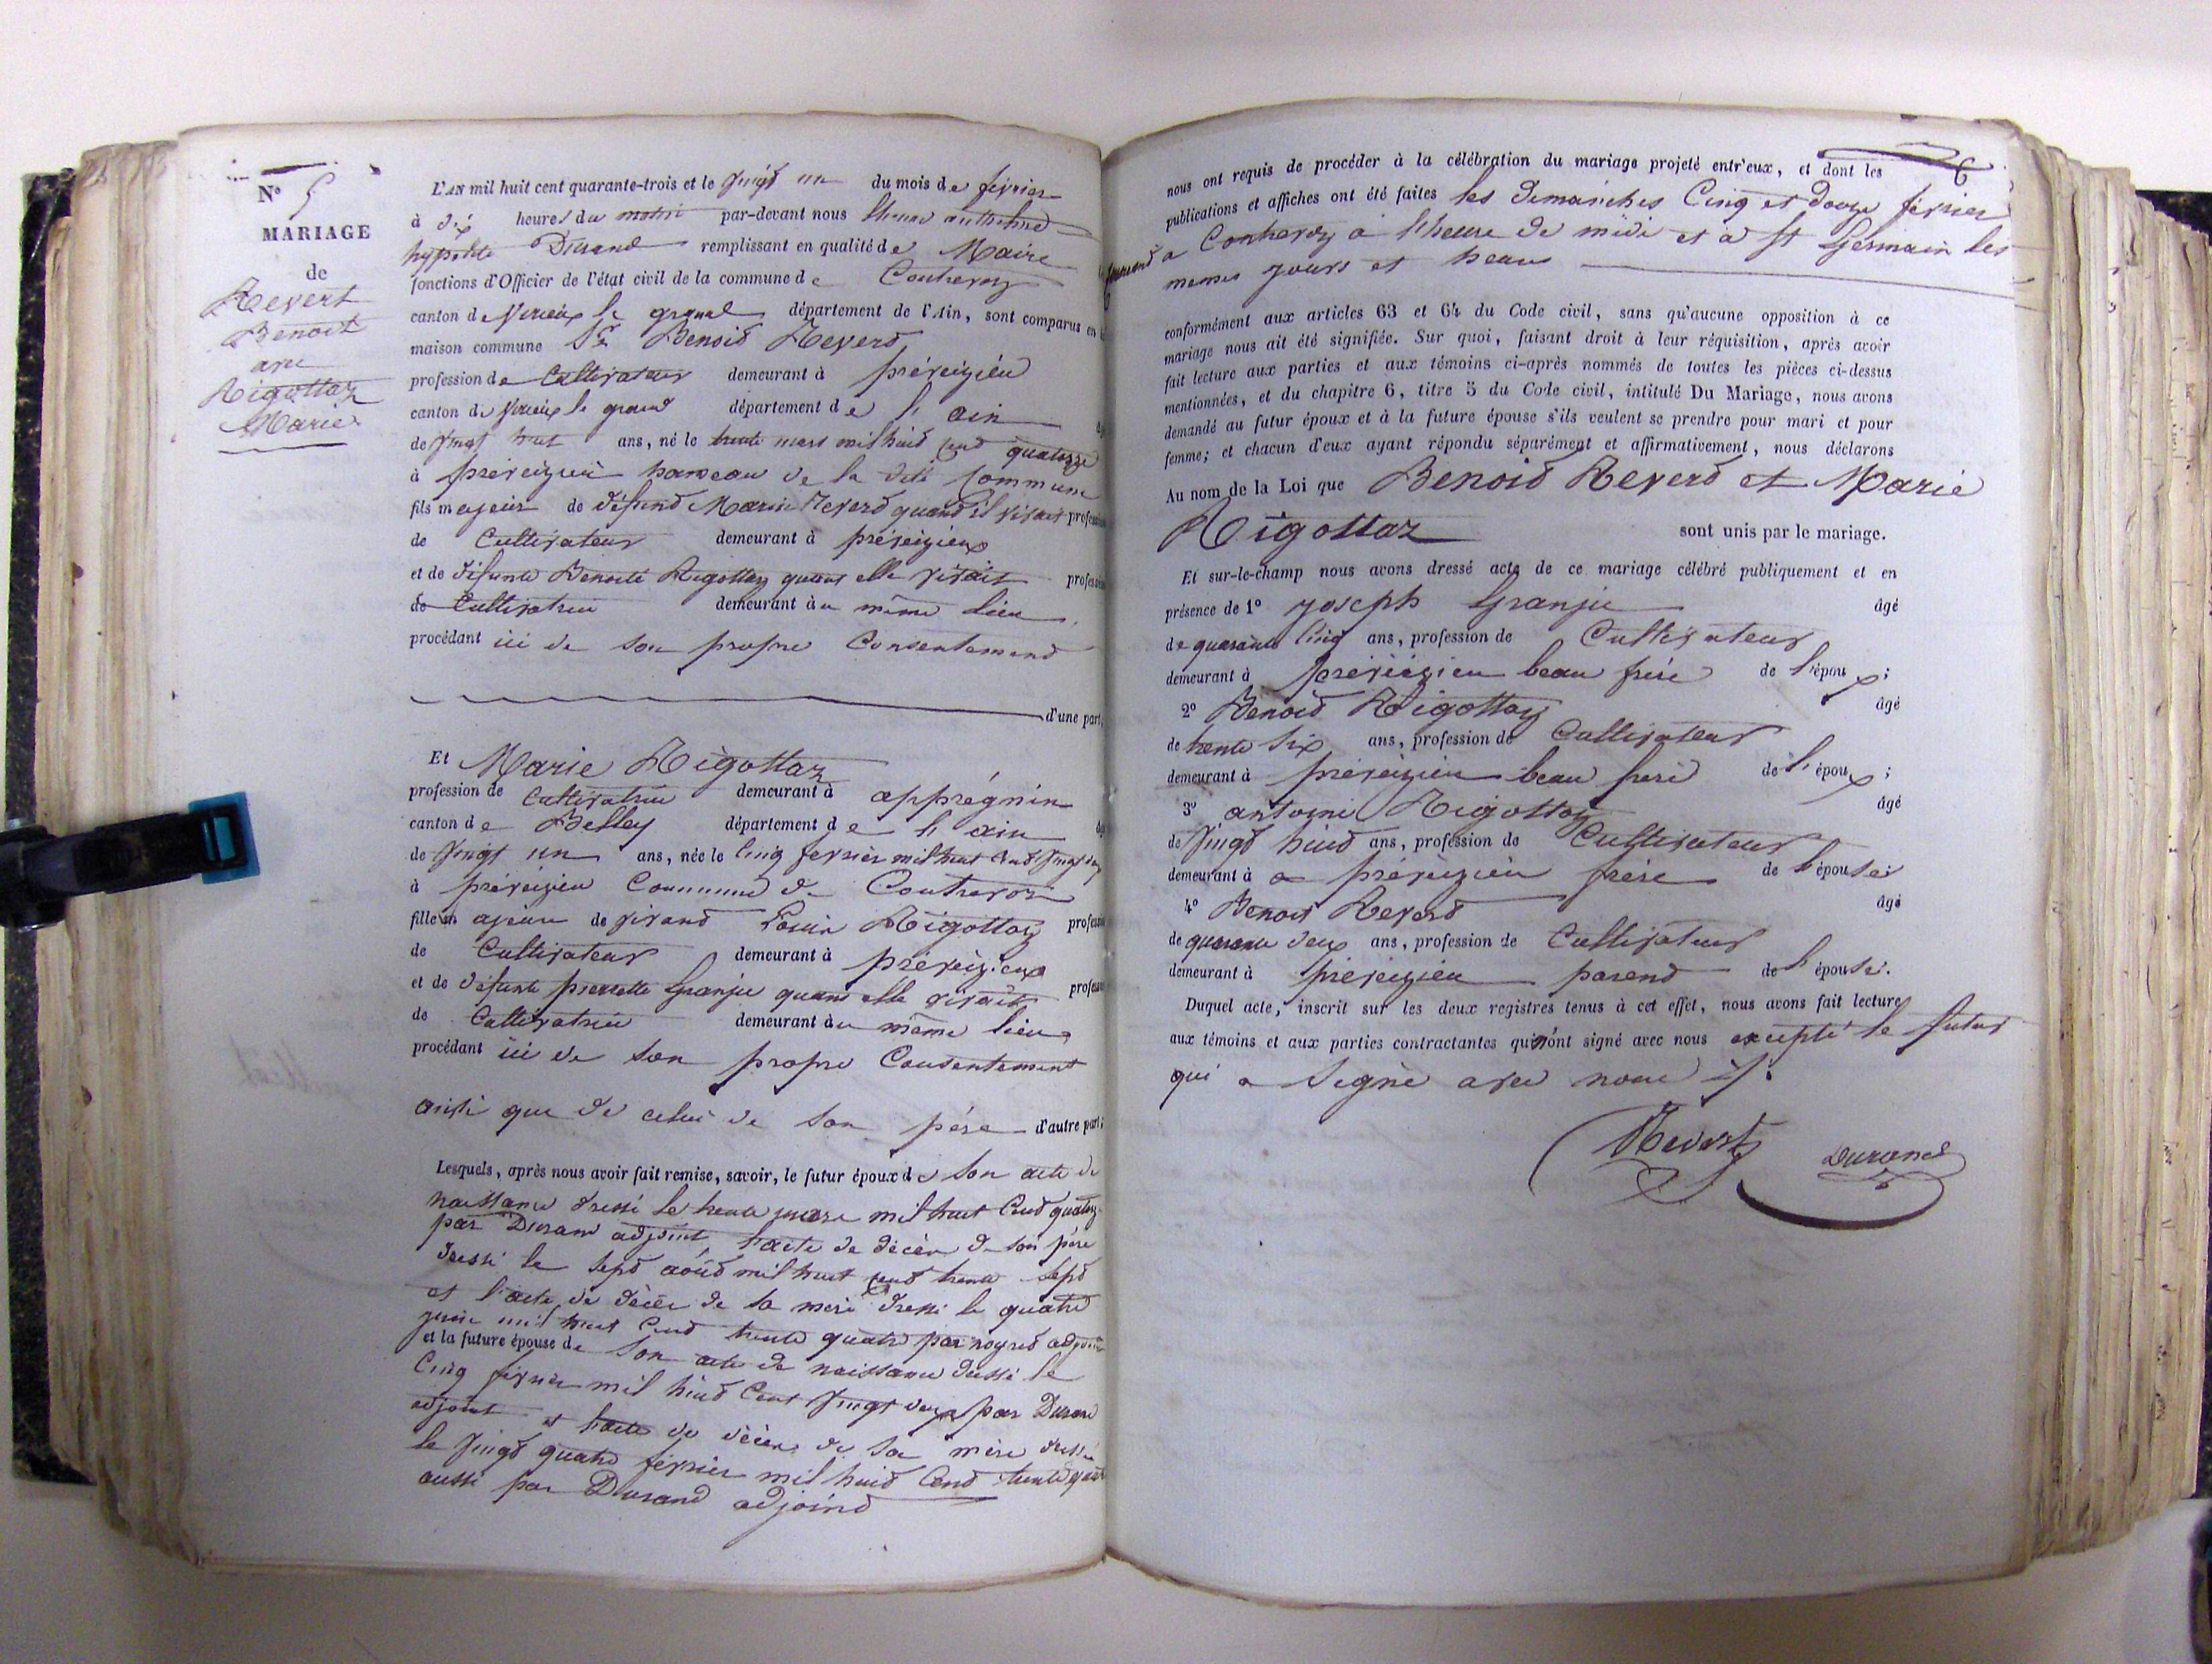 N° 5
MARIAGE
de
Revert
Benoit
avec
Rigottaz
Marie
L'AN mil huit cent quarante-trois et le vingt un du mois de fevrier
à dix heures du matin par-devant nous anthelme
hypolite Durand remplissant en qualité de Maire
fonctions d'Officier de l'état civil de la commune de Contrevoz
canton de Virieux le grand département de l'Ain, sont comparus en
maison commune Sr Benoid Reverd
profession de Cultivateur demeurant à préveizieu
canton de Virieux le grand département de l'ain
de vingt huit ans, né le trente mars mil huid cend quatorze
à préveizieu hameau de la dite Commune
fils majeur de défund Marin Reverd quand il vivait profession
de Cultivateur demeurant à préveizieux
et de défunte Benoite Rigottaz quand elle vivait profession
de Cultivatrice demeurant au même lieu
procédant ici de son propre Consentemend
d'une part,
Et Marie Rigottaz
profession de Cultivatrice demeurant à apprégnin
canton de Belley département de l'ain
de vingt un ans, née le cinq fevrier mil huit cend vingt deux
à préveizieu Commune de Contrevoz
fille majeure de vivand Louis Rigottaz profession
de Cultivateur demeurant à préveizieux
et de défunte pierrette Granjue quand elle vivait profession
de Cultivatrice demeurant au même lieu
procédant ici de son propre Consentement
ainsi que de celui de son père d'autre part;
Lesquels, après nous avoir fait remise, savoir, le futur époux de son acte de
naissance dressé le trente mars mil huit Cend quatorze
par Durand adjoint, l'acte de décès de son père
dressé le sepd aôud mil huit cend trente sepd
et l'acte de décès de sa mère dressé le quatre
juin mil huit Cend trente quatre par adjoint
et la future épouse de son acte de naissance dressé le
Cinq fevrier mil huid Cent vingt deux par Durand
adjoint et l'acte de décès de sa mère dressé
le vingd quatre fevrier mil huid Cend trente quatre
aussi par Durand adjoind
6
nous ont requis de procéder à la célébration du mariage projeté entr'eux, et dont les
publications et affiches ont été faites les dimanches Cinq et douze fevrier
a Contrevoz a l'heure de midi et a St Germain les
memes jours et heure
conformément aux articles 63 et 64 du Code civil, sans qu'aucune opposition à ce
mariage nous ait été signifiée. Sur quoi, faisant droit à leur réquisition, après avoir
fait lecture aux parties et aux témoins ci-après nommés de toutes les pièces ci-dessus
mentionnées, et du chapitre 6, titre 5 du Code civil, intitulé Du Mariage, nous avons
demandé au futur époux et à la future épouse s'ils veulent se prendre pour mari et pour
femme; et chacun d'eux ayant répondu séparément et affirmativement, nous déclarons
Au nom de la Loi que Benoid Reverd et Marie
Rigottaz sont unis par le mariage.
Et sur-le-champ nous avons dressé acte de ce mariage célébré publiquement et en
présence de 1° joseph Granjue âgé
de quarante cinq ans, profession de Cultivateur
demeurant à préveizieu beau frère de l'époux;
2° Benoid Rigottaz âgé
de trente six ans, profession de Cultivateur
demeurant à préveizieu beau frère de l'époux;
3° antoine Rigottaz âgé
de vingd huid ans, profession de Cultivateur
demeurant à a préveizieu frère de l'épouse
4° Benoit Reverd âgé
de quarante deux ans, profession de Cultivateur
demeurant à préveizieu parend de l'épouse.
Duquel acte, inscrit sur les deux registres tenus à cet effet, nous avons fait lecture
aux témoins et aux parties contractantes qui n'ont signé avec nous excepté le futur
qui a signé avec nous
Revert Durand